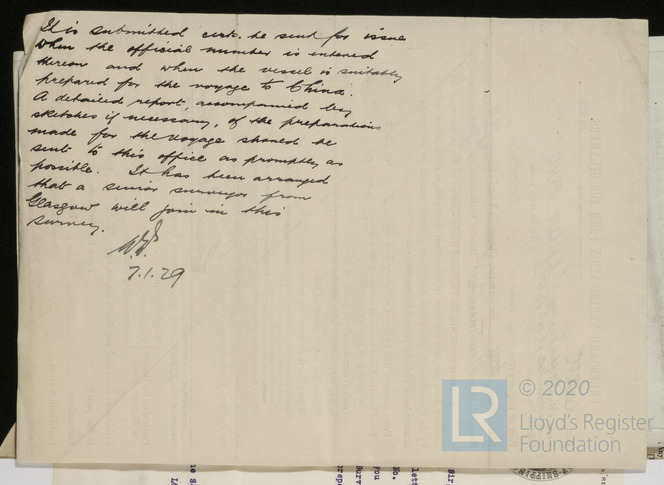 It is submitted cert. be sent for issue
when the official number is entered
thereon and when the vessel is suitably
prepared for the voyage to China.
A detailed report, accompanied by
sketches if necessary, of the preparations
made for the voyage should be
sent to this office as promptly as
possible. It has been arranged
that a senior surveyor from
Glasgow will join in this
survey.
7.1.29
LR
© 2020
Lloyd's Register
Foundation